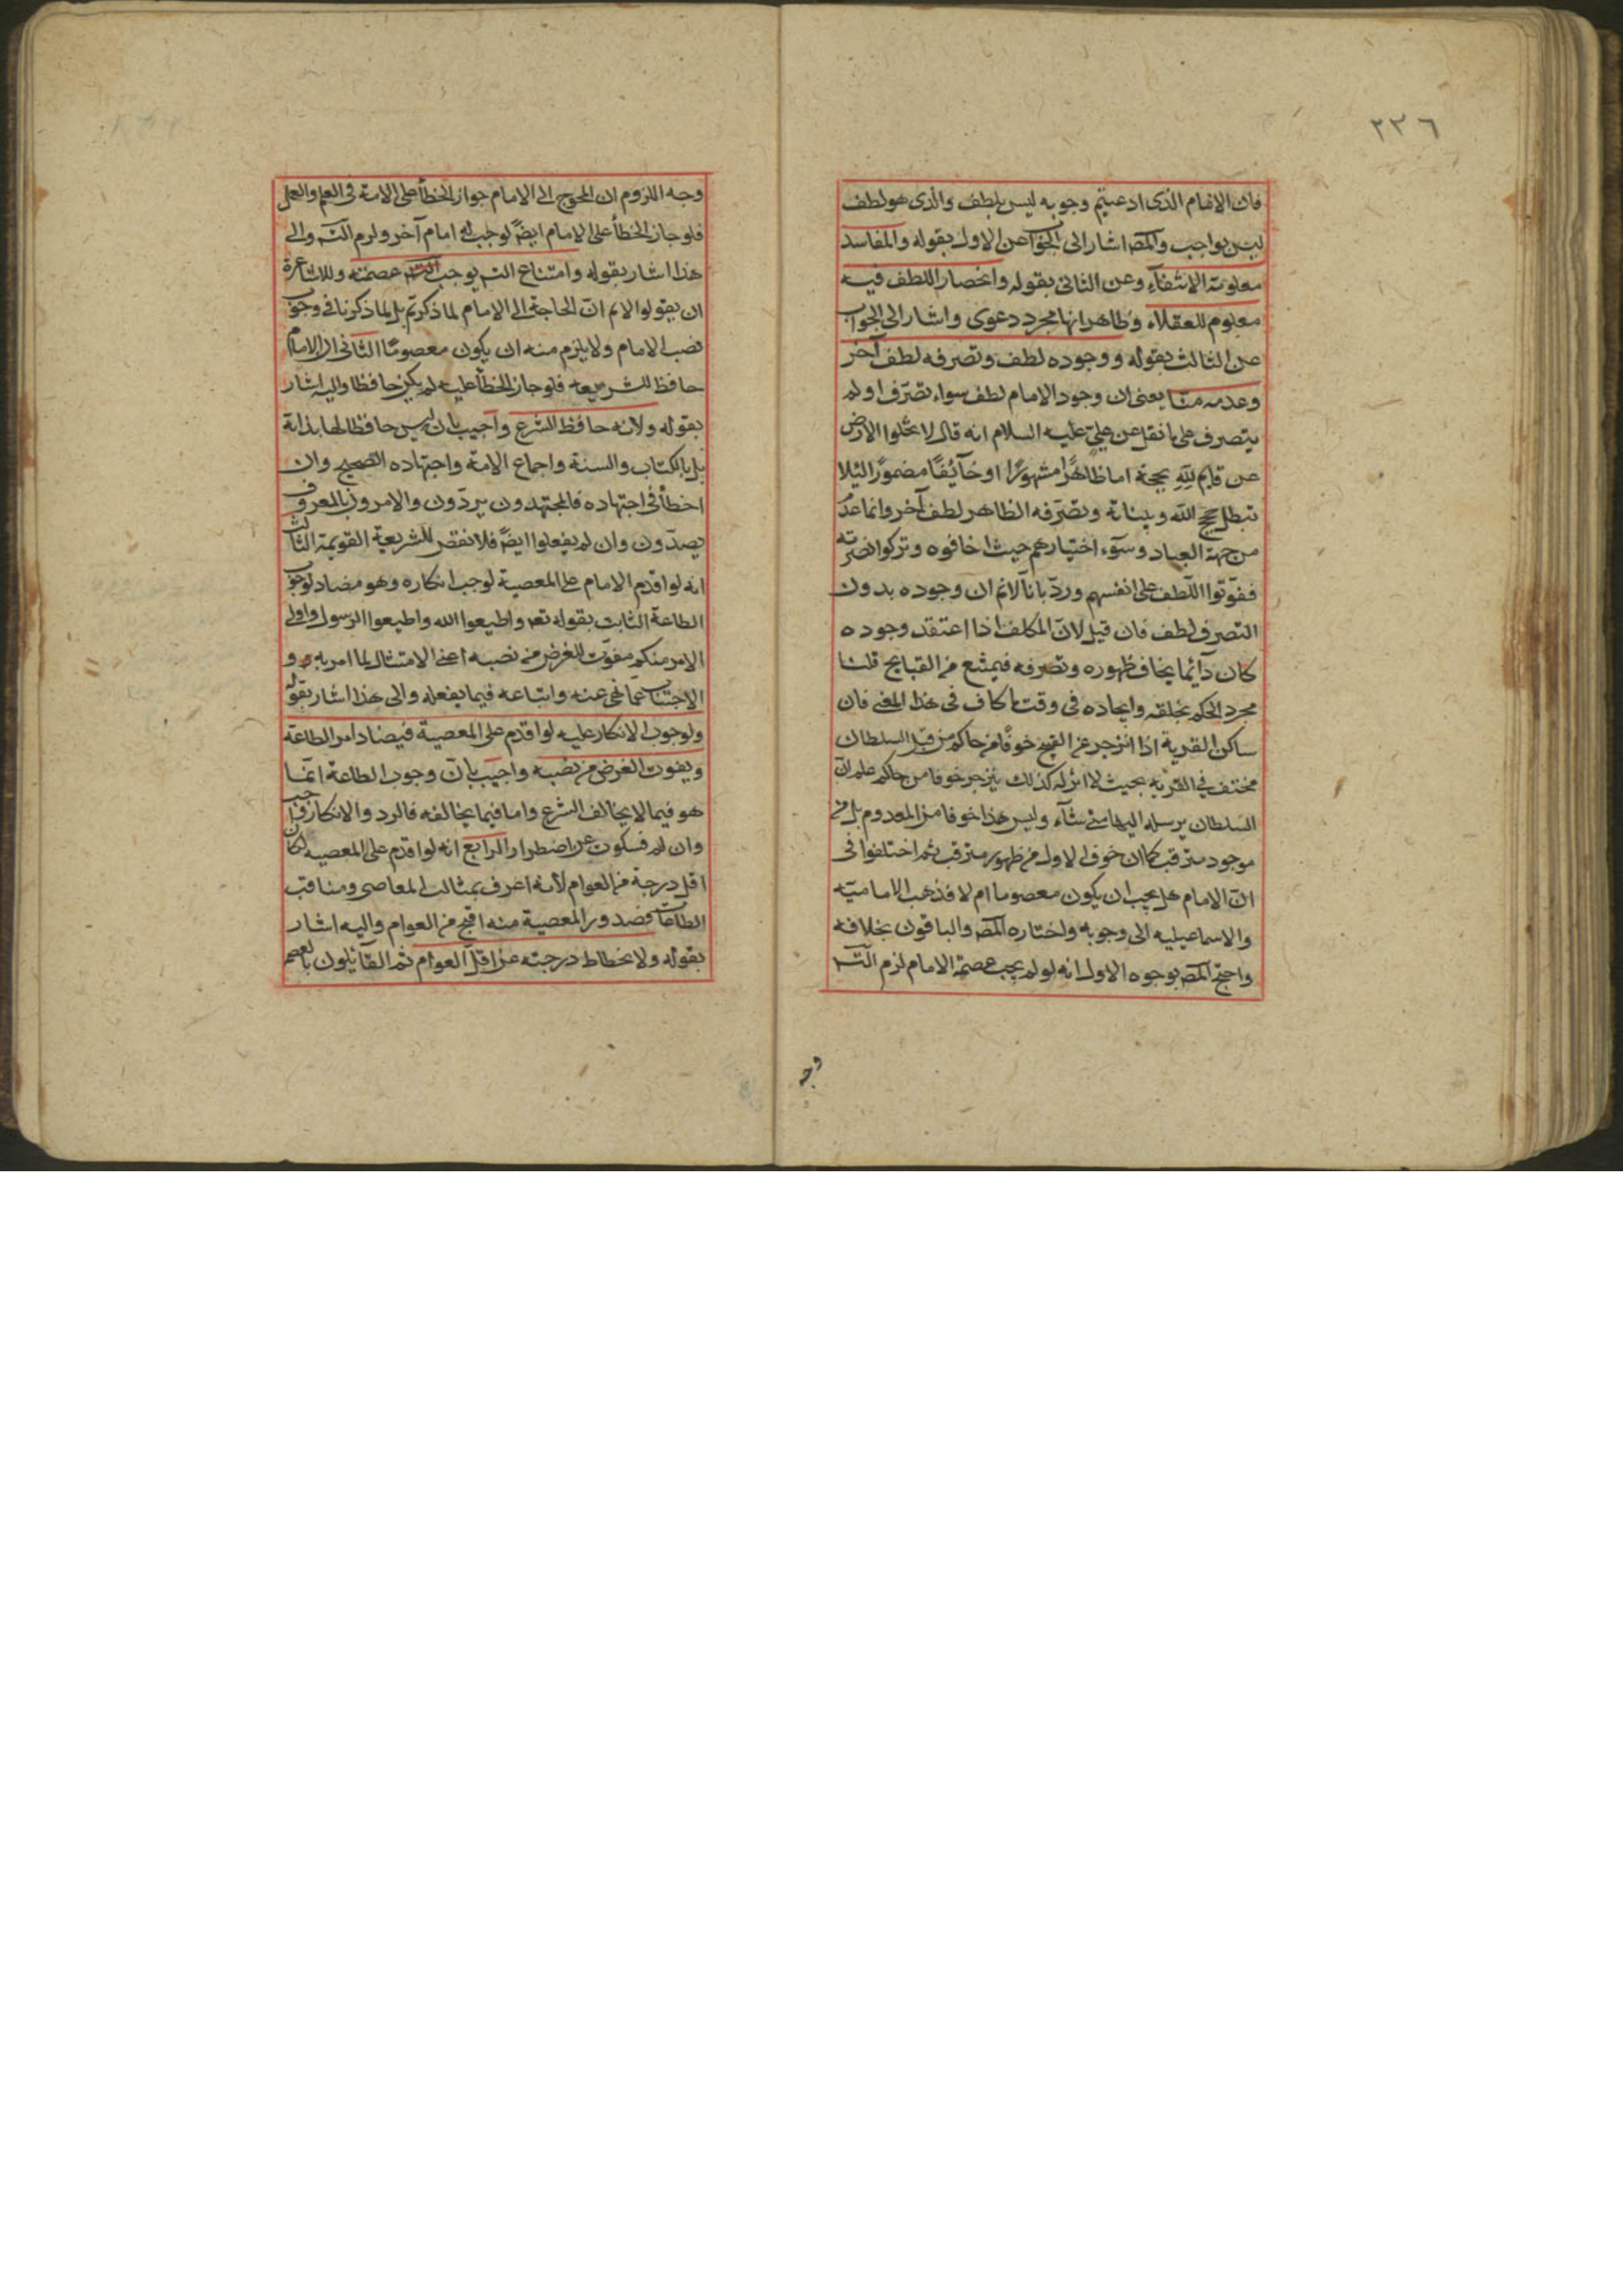 ٢٣٦
فان الامام الذى ادعيتم وجوبه ليس بلطف والذى هو لطف
ليس بواجب والمصـ اشار الى الجواب عن الاول بقوله والمفاسد
معلومة الانتفاء وعن الثانى بقوله وانحصار اللطف فيه
معلوم للعقلاء وظاهر انها مجرد دعوى واشار الى الجواب
عن الثالث بقوله ووجوده لطف وتصرفه لطف آخر
وعدمه منا يعنى ان وجود الامام لطف سواء تصرف او لم
يتصرف على ما نقل عن علىّ عليه السلام انه قال لا تخلوا الارض
عن قايم لله بحجة اما ظاهرًا مشهورًا او خآئفًا مضمورًا لئلا
تبطل حجج الله وبيناته وتصرّفه الظاهر لطف آخر وانما عدم
من جهة العباد وسوء اختيارهم حيث اخافوه وتركوا نصرته
ففوّتوا اللطف على انفسهم وردّ بانا لانم ان وجوده بدون
التصرف لطف فان قيل لانّ المكلف اذا اعتقد وجوده
كان دآئما يخاف ظهوره وتصرفه فيمتنع من القبايح قلنا
مجرد الحكم بخلقه وايجاده فى وقت ما كاف فى هذا المعنى فان
ساكن القرية اذا انزجر عن القبيح خوفًا من حاكم من قبل السلطان
مختف فى القرية بحيث لا اثر له كذلك ينزجر خوفا من حاكم علم انّ
السلطان يرسله اليها متى شآء وليس هذا خوفا من المعدوم بل من
موجود مترقب كما ان خوف الاول من ظهور مترقب ثم اختلفوا فى
انّ الامام هل يجب ان يكون معصوما ام لا فذهب الامامية
والاسماعيليه الى وجوبه واختاره المصـ والباقون بخلافه
واحتج المصـ بوجوه الاول انه لو لم يجب عصمة الامام لزم التسـ
وجه
وجه اللزوم ان المحوج الى الامام جواز الخطأ على الامة فى العلم والعمل
فلو جاز الخطأ على الامام ايضً لوجب له امام آخر ولزم التسـ والى
هذا اشار بقوله وامتناع التسـ يوجب عصمته وللاشاعرة
ان يقولوا لانم انّ الحاجة الى الامام لما ذكرتم بل لما ذكرنا فى وجوب
نصب الامام ولا يلزم منه ان يكون معصومًا الثانى ان الامام
حافظ للشريعه فلو جاز الخطأ عليه لم يكن حافظا واليه اشار
بقوله ولانه حافظ الشرع واجيب بان ليس حافظا لها بذاته
بل بالكتاب والسنة واجماع الامة واجتهاده الصحيح وان
اخطأ فى اجتهاده فالمجتهدون يردّون والامرون بالمعروف
يصدّون وان لم يفعلوا ايضً فلا نقض للشريعة القويمة الثالث
انه لو اقدم الامام على المعصية لوجب انكاره وهو مضاد لوجوب
الطاعة الثابت بقوله تعـ واطيعوا الله واطيعوا الرسول واولى
الامر منكم مفوّت للغرض من نصبه اعنى الامتثال لما امر به و
الاجتناب عما نهى عنه واتباعه فيما يفعله والى هذا اشار بقوله
ولوجوب الانكار عليه لو اقدم على المعصية فيضاد امر الطاعة
ويفوت الغرض من نصبه واجيب بانّ وجوب الطاعة انّما
هو فيما لا يخالف الشرع واما فيما يخالفه فالرد والانكار واجب
وان لم فسكوت عن اضطرار الرابع انه لو اقدم على المعصيه لكان
اقل درجة من العوام لانه اعرف بمثالب المعاصى ومناقب
الطاعات فصدور المعصية منه اقبح من العوام واليه اشار
بقوله ولانحطاط درجته عن اقل العوام ثم القآئلون بالعصم